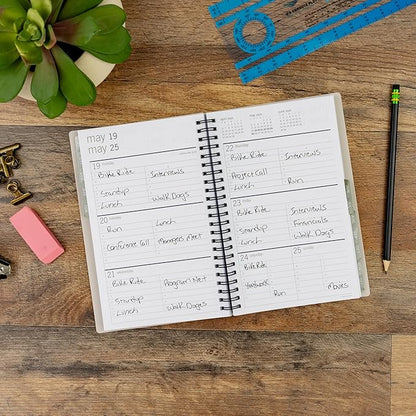 may 19
may 25
19 monday
Bike Ride Interviews
Standup
Lunch Walk Dogs
20
Run Lunch
Conference Call Managers Meet
21
Bike Ride Program Meet
Standup
Lunch Walk Dogs
22
Bike Ride Interviews
Project Call
Lunch Run
23
Bike Ride Interviews
Standup Financials
Lunch Walk Dogs
24 25
Bike Ride
Yardwork
Run Movies